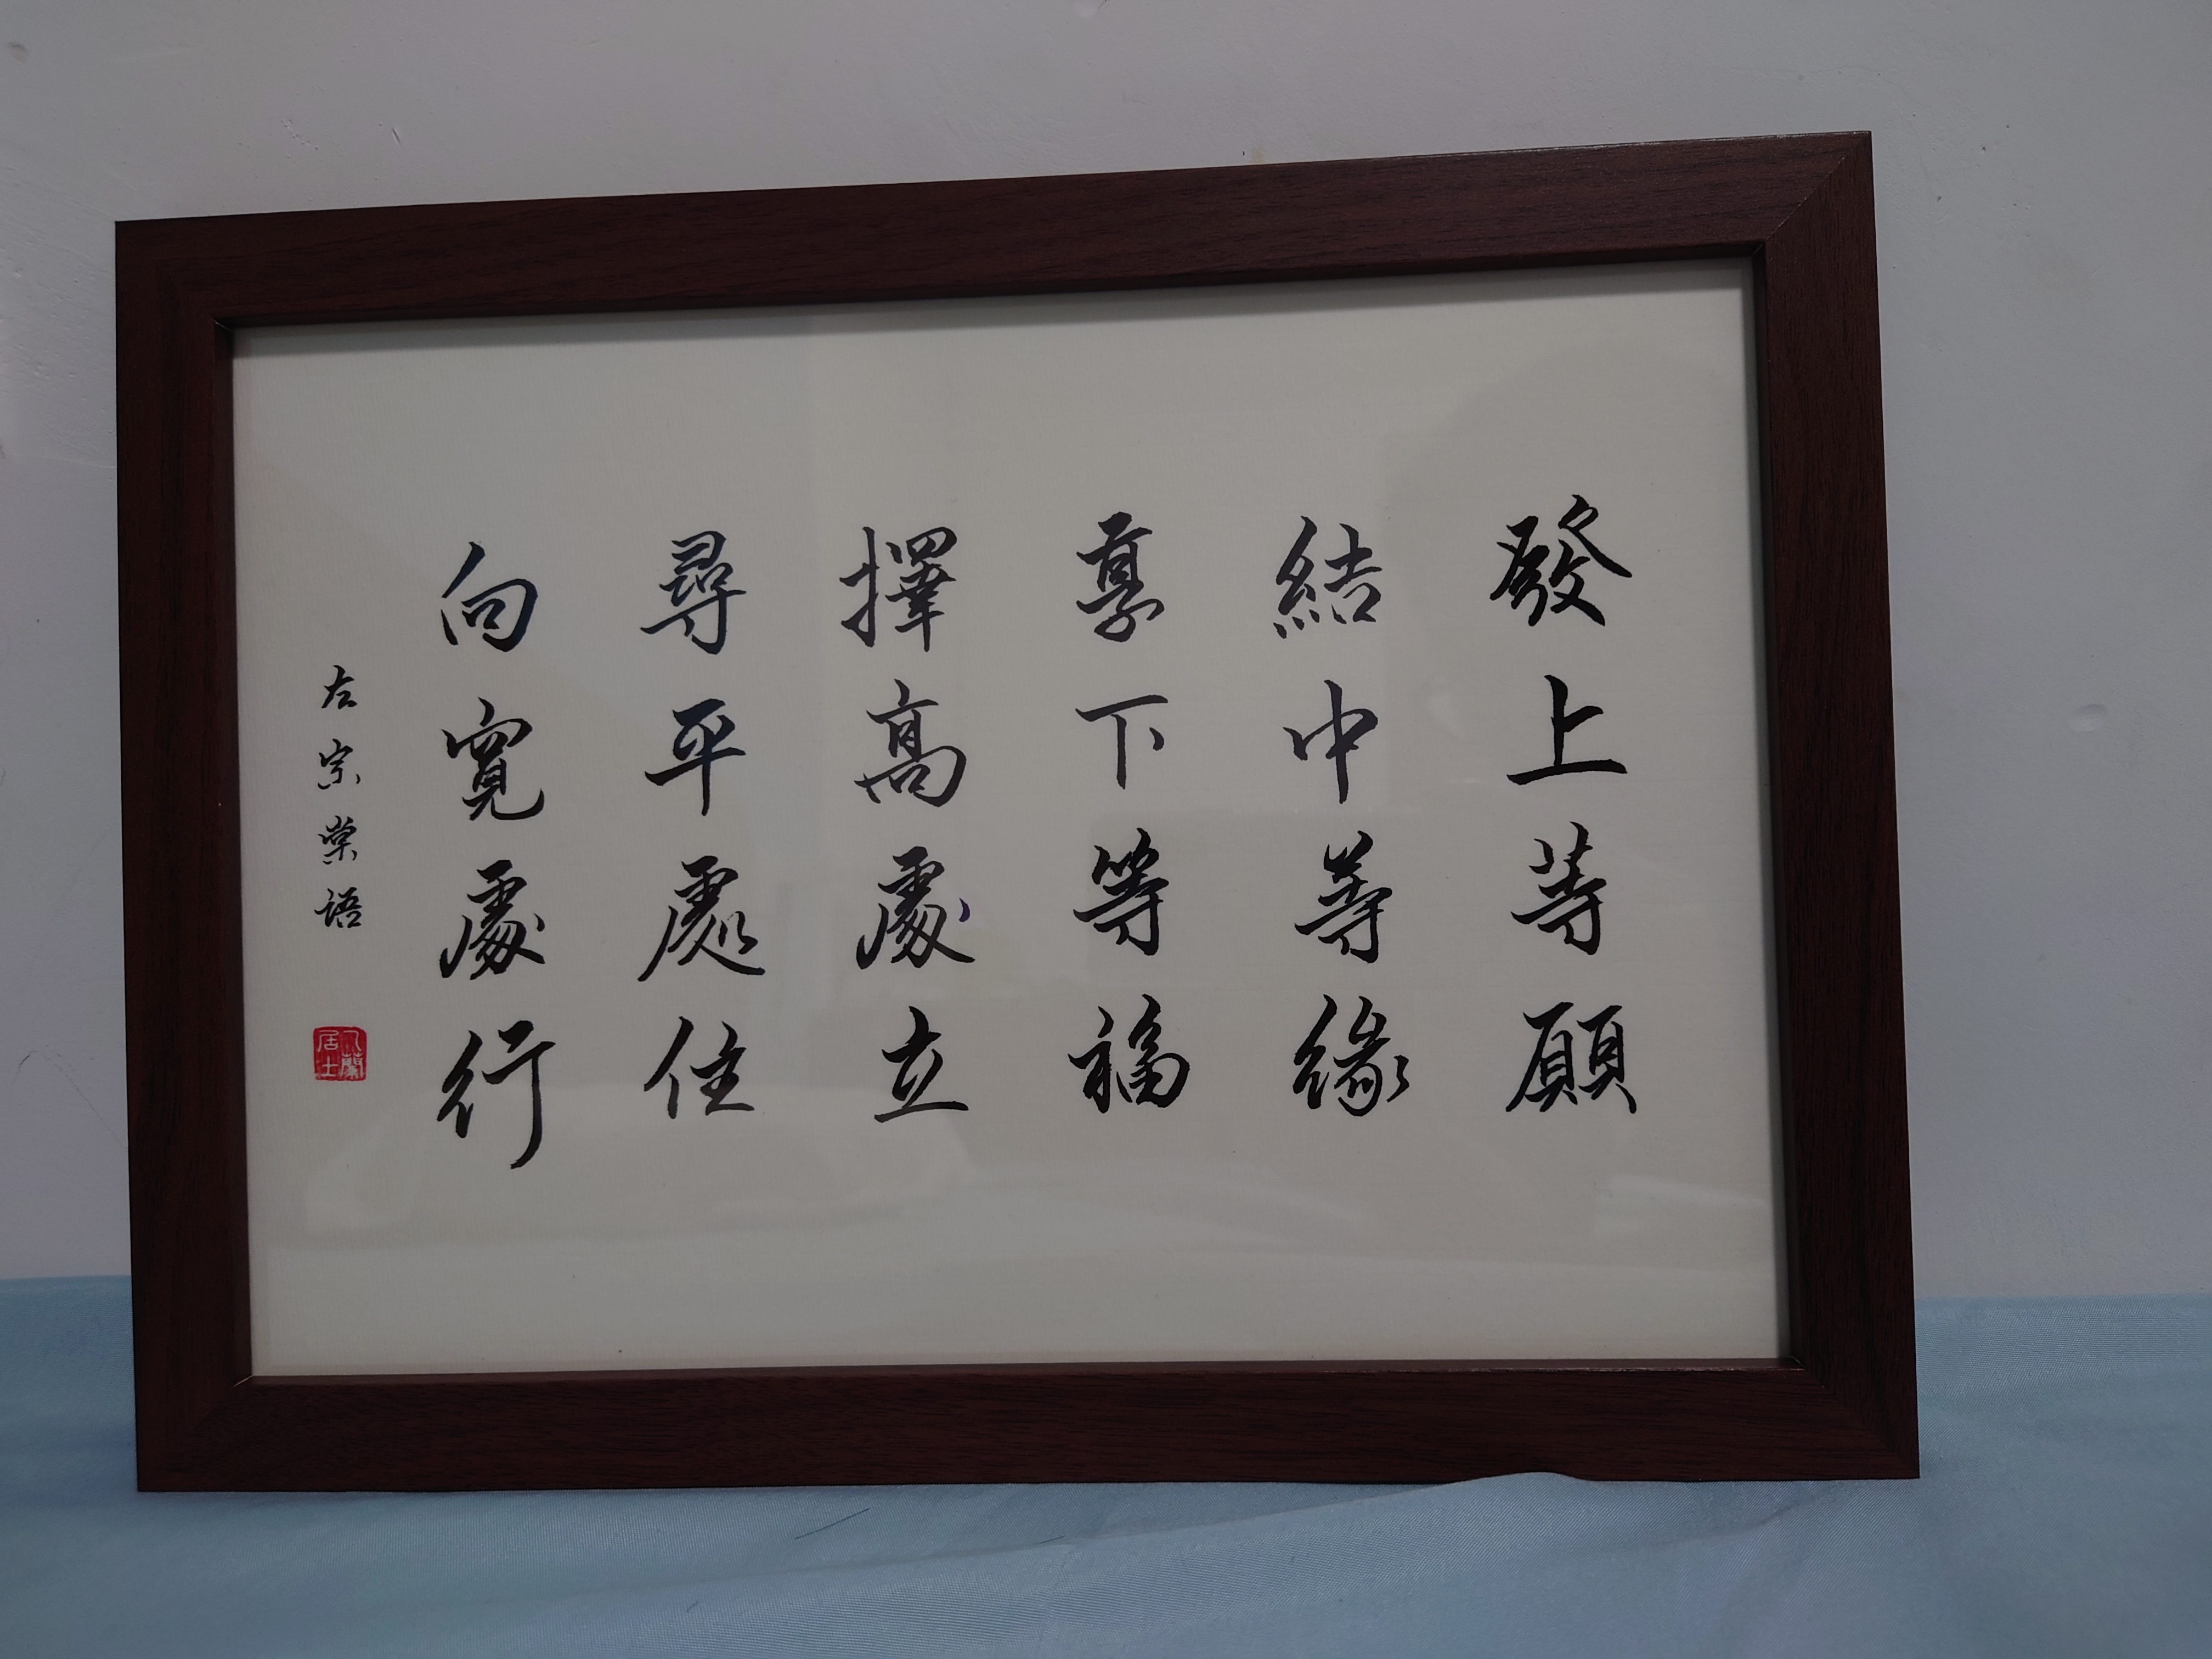 發上等願
結中等緣
享下等福
擇高處立
尋平處住
向寬處行
左宗棠語
居士